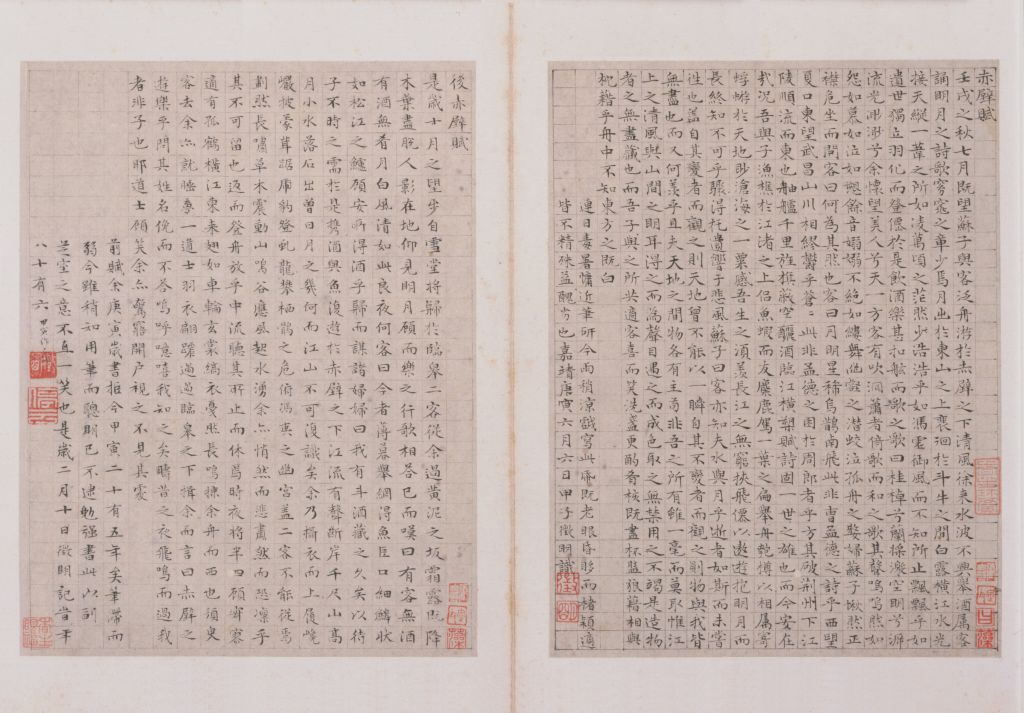 赤壁賦
壬戌之秋七月既望蘇子與客泛舟游於赤壁之下清風徐来水波不興舉酒属客
誦明月之詩歌窈窕之章少焉月出於東山之上裵徊於斗牛之間白露橫江水光
接天縱一葦之所如凌萬頃之茫然浩浩乎如馮虛御風而不知所止飄飄乎如
遺世獨立羽化而登僊於是飲酒樂甚扣舷而歌之歌曰桂棹兮蘭槳擊空明兮泝
流光渺渺兮余懷望美人兮天一方客有吹洞簫者倚歌而和之其聲嗚嗚然如
怨如慕如泣如訴餘音嫋嫋不絕如縷舞幽壑之潛蛟泣孤舟之嫠婦蘇子愀然正
襟危坐而問客曰何為其然也客曰月明星稀烏鵲南飛此非曹孟德之詩乎西望
夏口東望武昌山川相繆鬱乎蒼〻此非孟德之困于周郎者乎方其破荆州下江
陵順流而東也舳艫千里旌旗蔽空釃酒臨江橫槊賦詩固一世之雄也而今安在
哉況吾與子漁樵於江渚之上侶魚蝦而友麋鹿駕一葉之扁舟舉匏樽以相属寄
蜉蝣於天地眇滄海之一粟吾生之須臾羨長江之無窮挾飛僊以遨遊抱明月而
長終知不可乎驟得托遺響于悲風蘇子曰客亦知夫水與月乎逝者如斯而未嘗
往也盖自其變者而觀之則天地曾不能以一瞬自其不變者而觀之則物與我皆
無盡也而又何羨乎且夫天地之間物各有主苟非吾之所有雖一毫而莫取惟江
上之清風與山間之明耳得之而為聲目遇之而成色取之無禁用之不竭是造物
者之無盡藏也而吾與子之所共適客喜而笑洗盞更酌肴核既盡杯盤狼藉相與
枕藉乎舟中不知東方之既白
連日毒暑慵近筆研今雨稍涼戲寫此既老眼昏眵而楮穎適
皆不精殊益醜劣也嘉靖庚寅六月六日甲子徵明識
後赤壁賦
是歲十月之望步自雪堂將歸於臨皋二客從余過黃泥之坂霜露既降
木葉盡脫人影在地仰見明月顧而樂之行歌相答已而嘆曰有客無酒
有酒無肴月白風清如此良夜何客曰今者薄暮舉網得魚巨口細鱗状
如松江之鱸顧安所得酒乎歸而謀諸婦婦曰我有斗酒藏之久矣以待
子不時之需於是攜酒與魚復遊於赤壁之下江流有聲断岸千尺山高
月小水落石出曾日月之幾何而江山不可復識矣余乃攝衣而上履巉
巖披蒙茸踞虎豹登虬龍攀栖鶻之危俯馮夷之幽宮盖二客不能從焉
劃然長嘯草木震動山鳴谷應風起水湧余亦悄然而悲肅然而恐凛乎
其不可留也返而登舟放乎中流聽其所止而休焉時夜將半四顧寂寥
適有孤鶴橫江東来翅如車輪玄裳縞衣戛然長鳴掠余舟而西也須臾
客去余亦就睡夢一道士羽衣翩躚過臨皋之下揖余而言曰赤壁之
遊樂乎問其姓名俛而不答嗚呼噫嘻我知之矣疇昔之夜飛鳴而過我
者非子也耶道士顧笑余亦驚寤開户視之不見其處
前賦余庚寅歲書拒今甲寅二十有五年矣筆滯而
弱今雖稍知用筆而聰明已不逮勉强書此以副
芝室之意不直一笑也是歲二月十日徵明記當年
八十有六